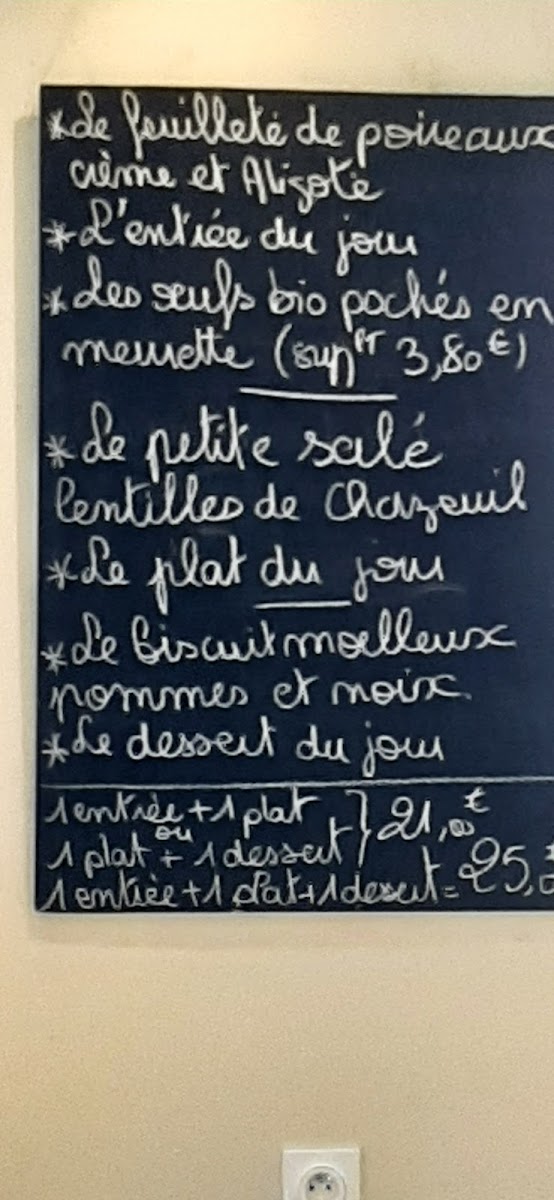 *Le feuilleté de poireaux
crème et Aligoté
*L'entrée du jour
*Les œufs bio pochés en
meurette (supPT 3,80€)
*Le petite salé
lentilles de Chazeuil
*Le plat du jour
*Le biscuit moelleux
pommes et noix
*Le dessert du jour
1 entrée + 1 plat
ou
1 plat + 1 dessert } 21,00€
1 entrée + 1 plat + 1 dessert = 25,0